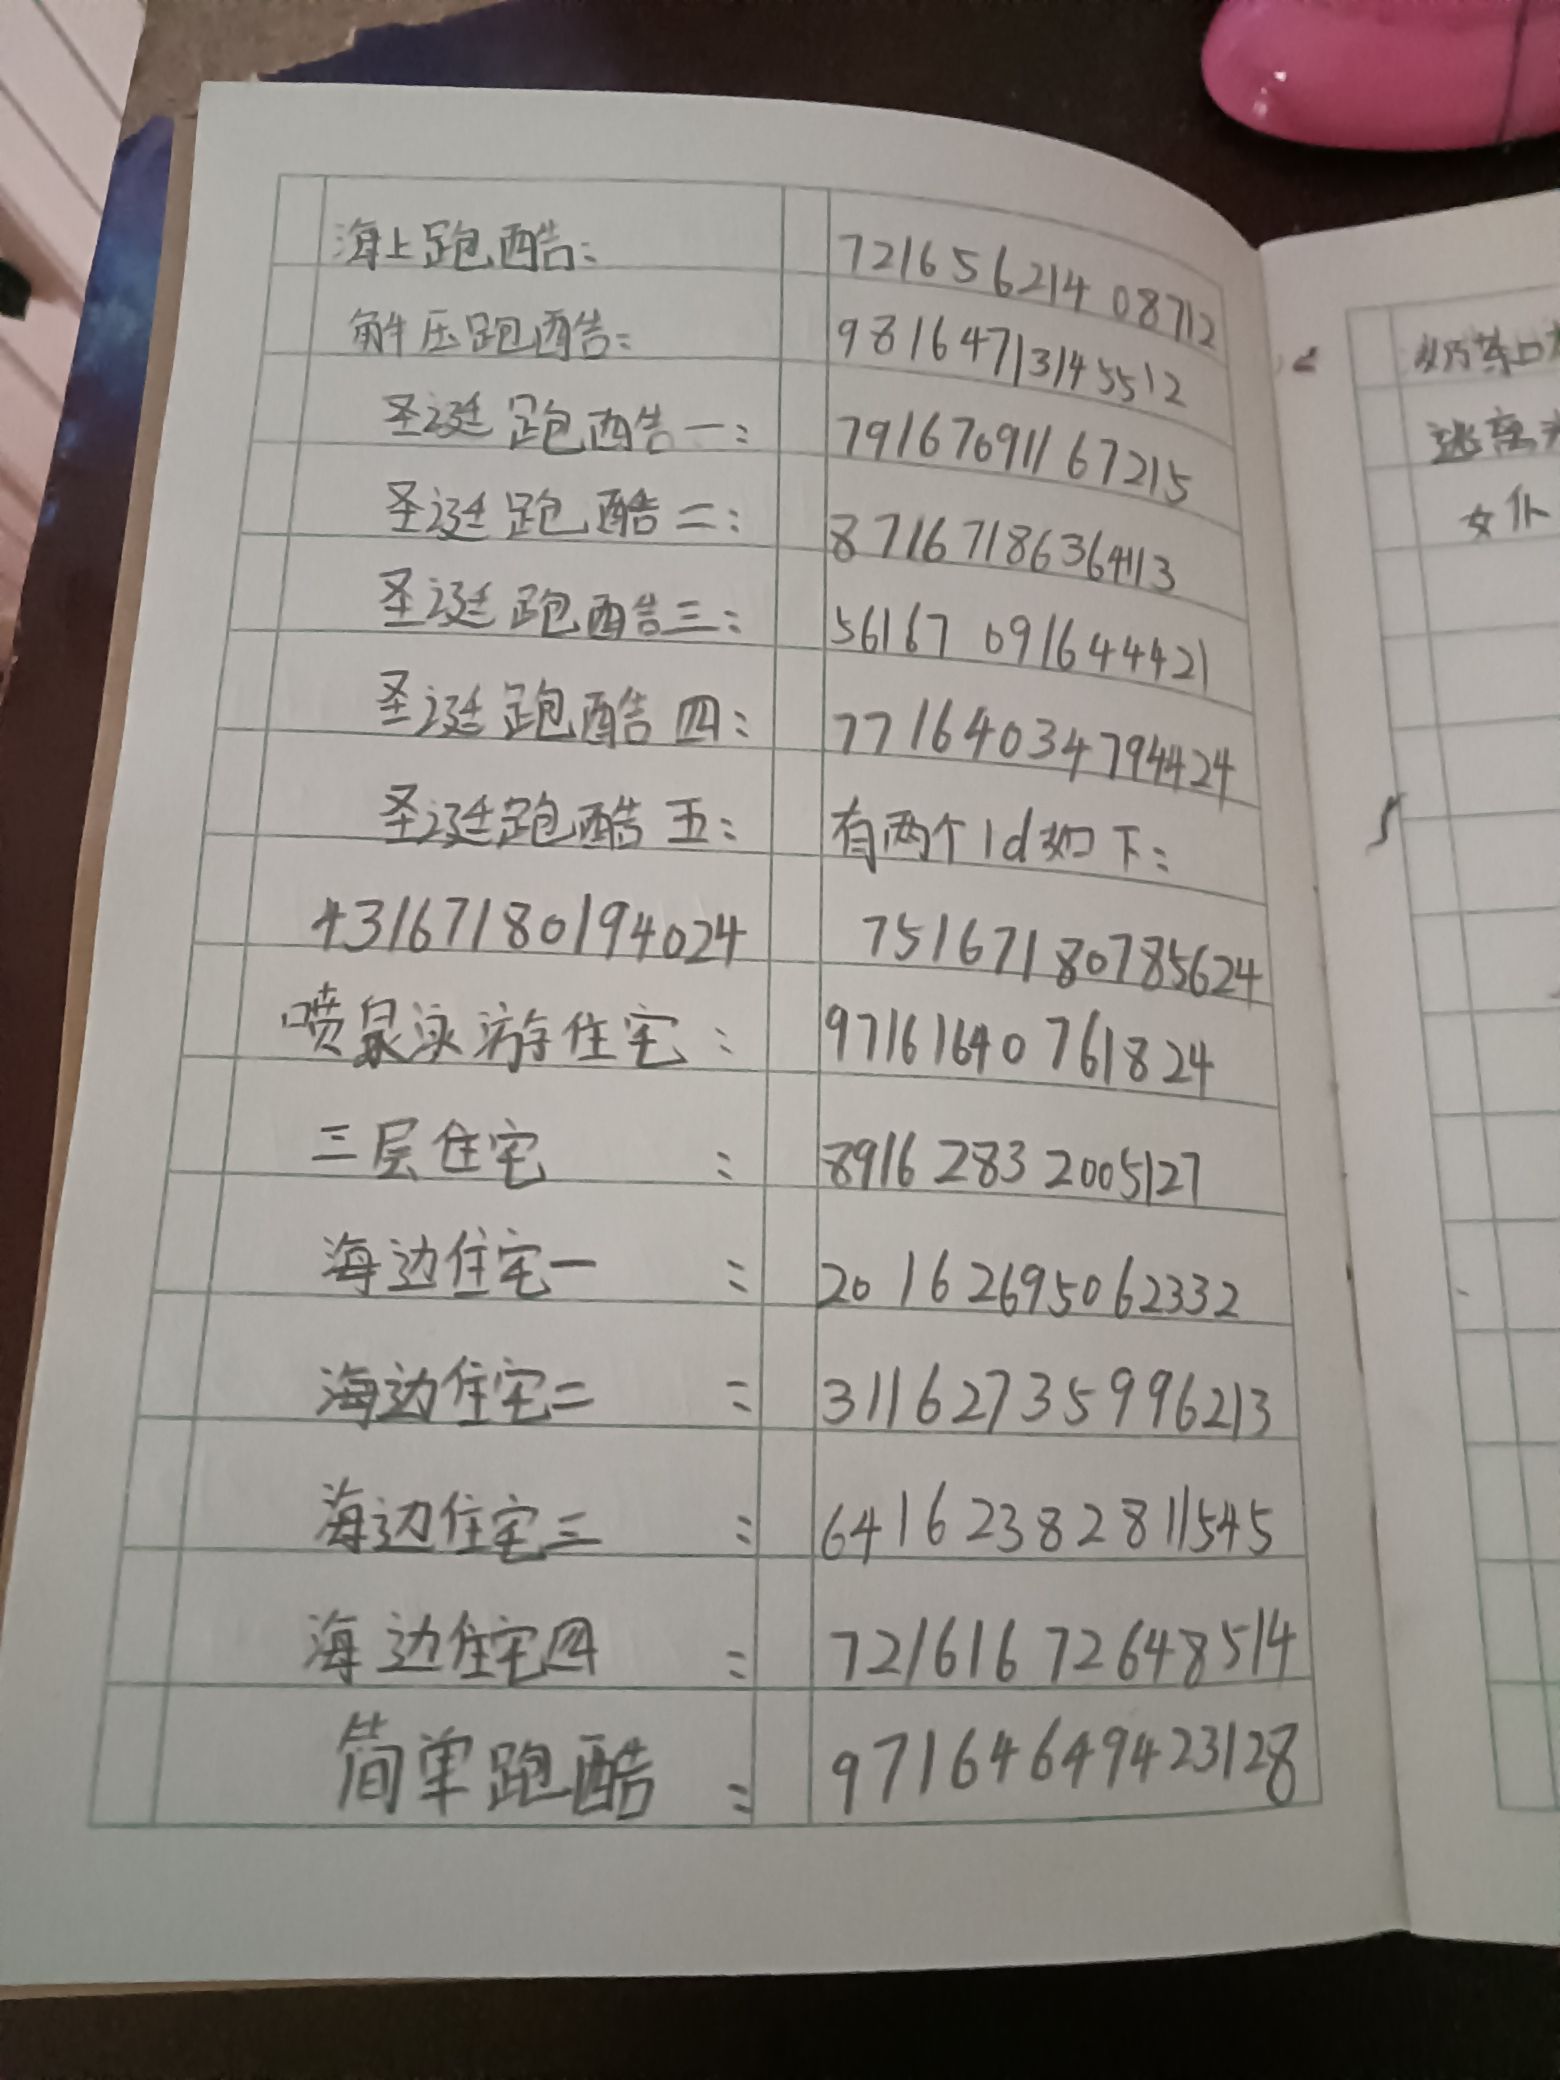 海上跑酷: 72165621408712
解压跑酷: 98164713145512
圣诞跑酷一: 79167091167215
圣诞跑酷二: 87167186364113
圣诞跑酷三: 56167091644421
圣诞跑酷四: 77164034794424
圣诞跑酷五: 有两个id如下:
43167180194024 75167180785624
喷泉泳游住宅: 97161640761824
三层住宅: 89162832005127
海边住宅一: 20162695062332
海边住宅二: 31162735996213
海边住宅三: 64162382811545
海边住宅四: 72161672648514
简单跑酷: 97164649423128
女仆